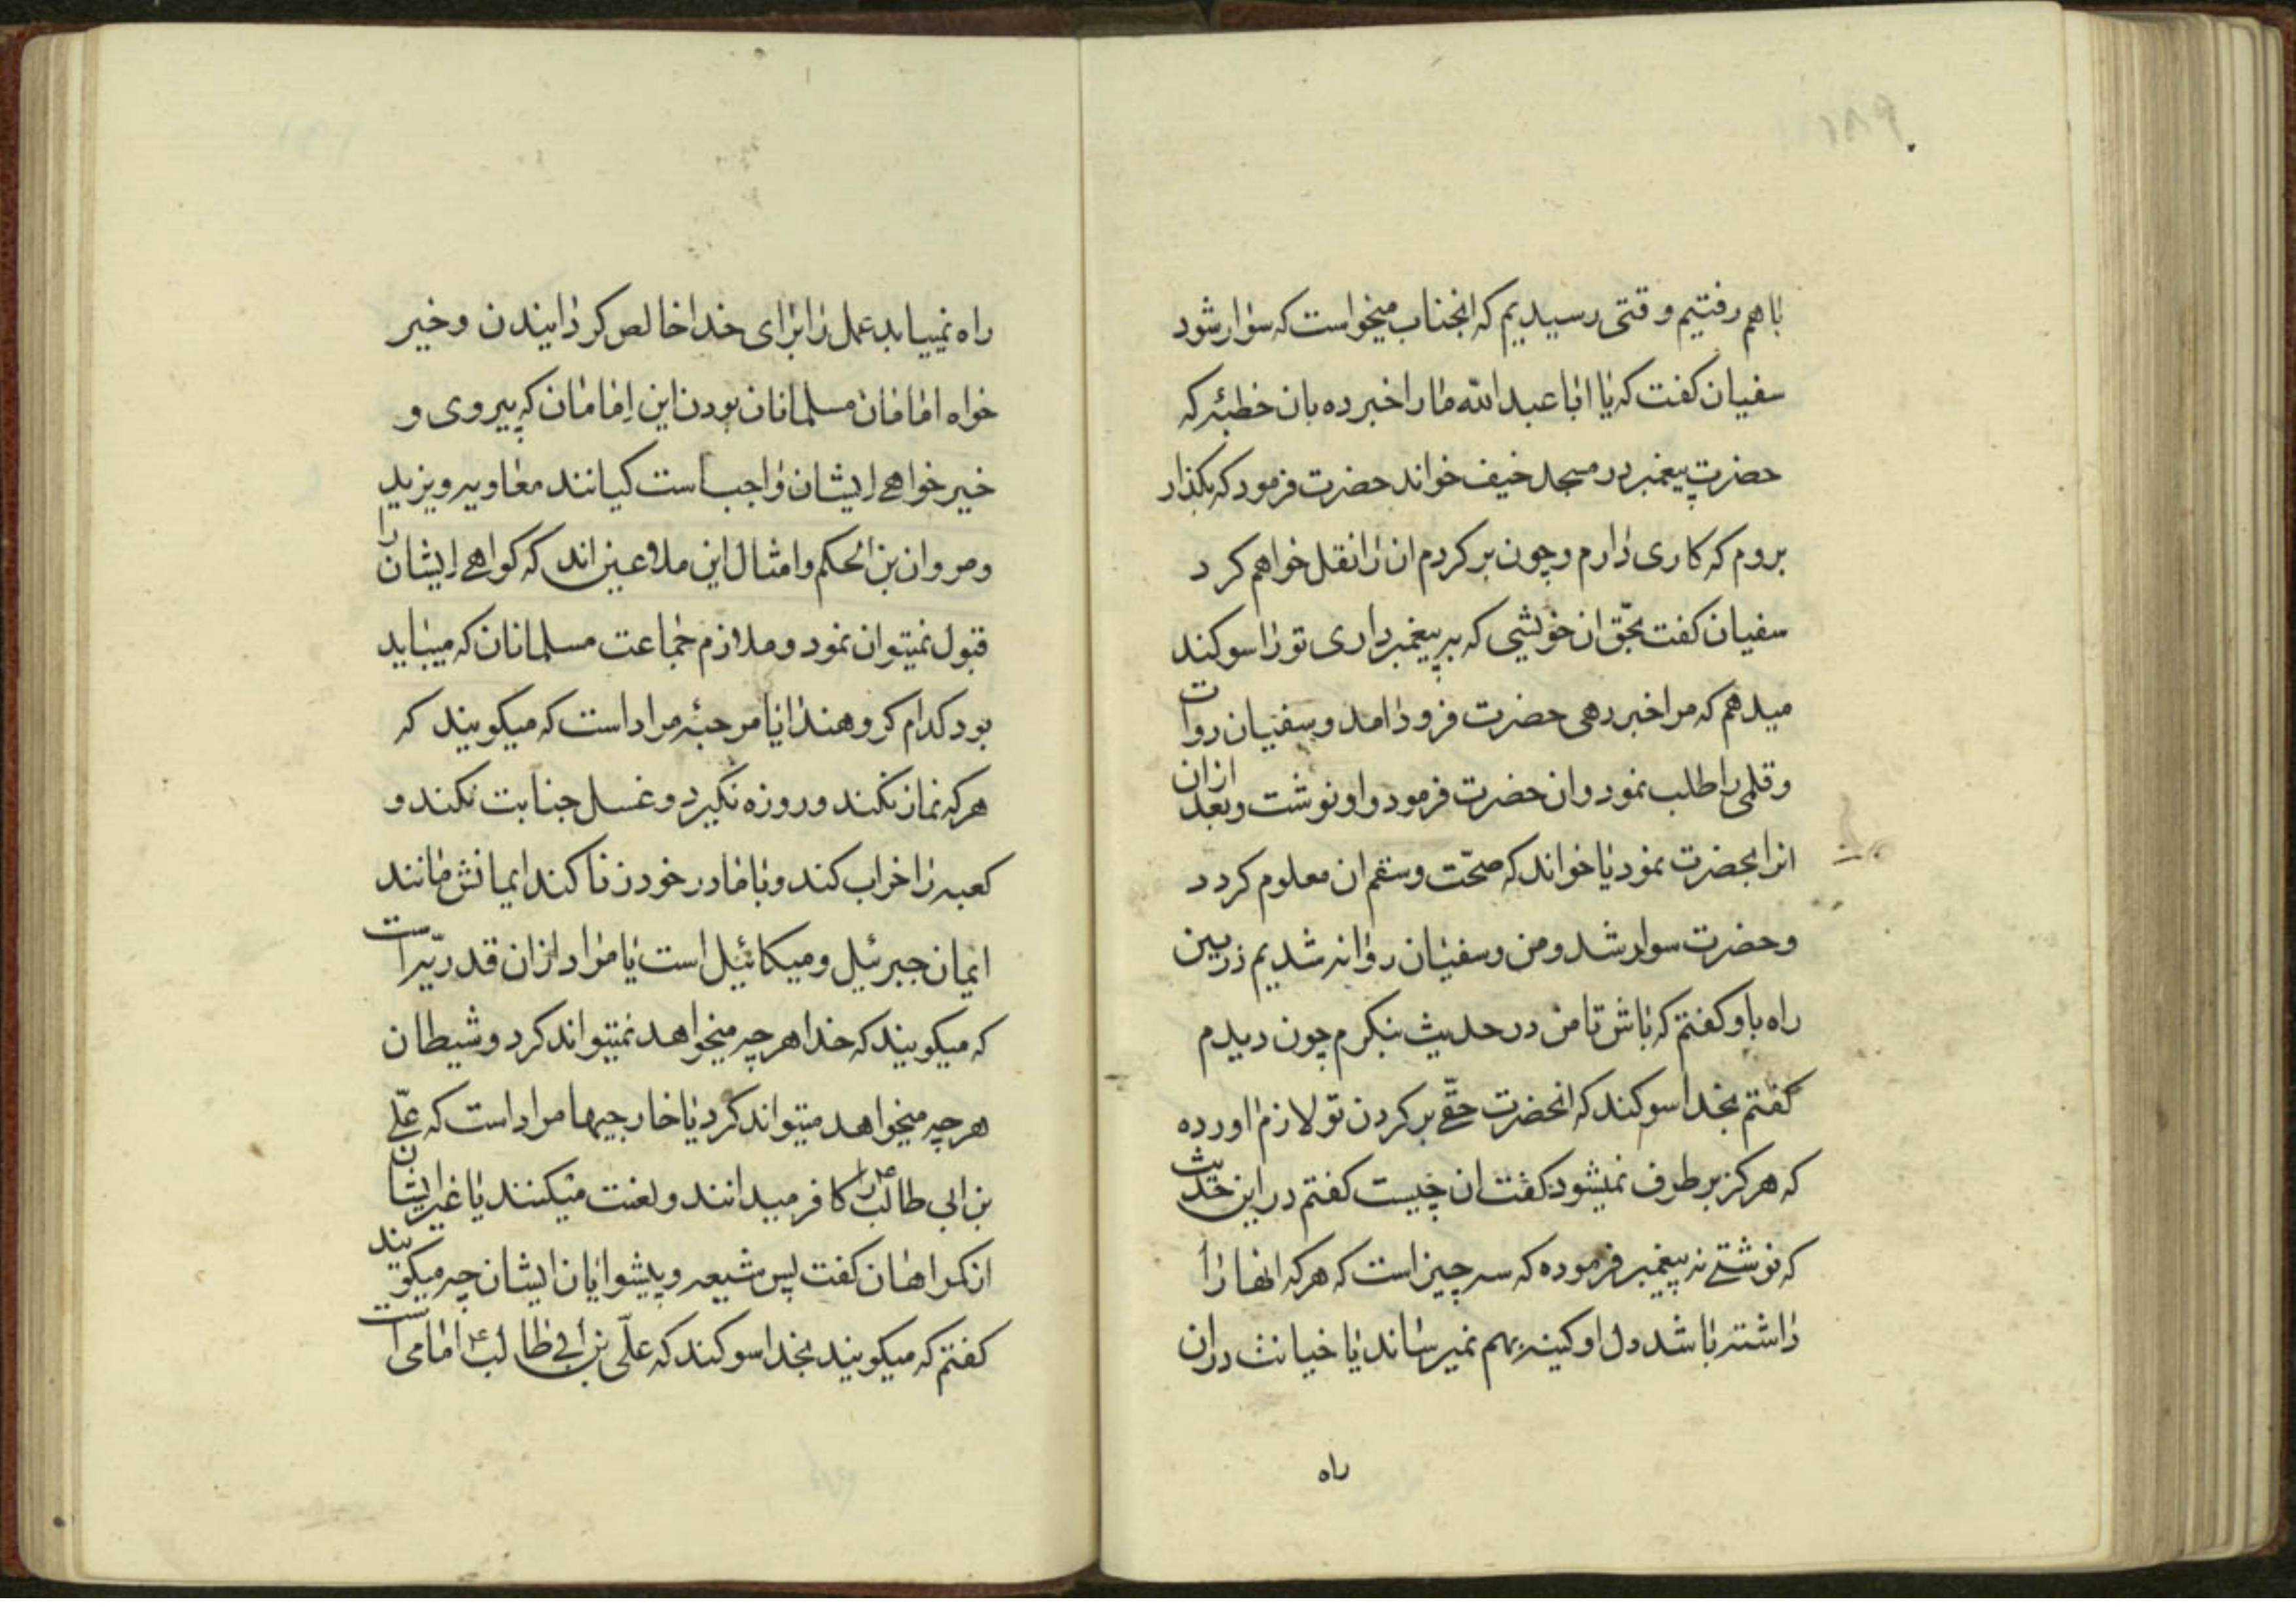 باهم رفتیم وقتی رسیدیم که انجناب میخواست که سوار شود
سفیان کفت که یا ابا عبد الله مارا خبر ده بان خطبهٔ که
حضرت پیغمبر در مسجد خیف خواند حضرت فرمود که بکذار
بروم که کاری دارم و چون برکردم ان را نقل خواهم کرد
سفیان کفت بحقّ ان خویشی که به پیغمبر داری تو را سوکند
میدهم که مرا خبر دهی حضرت فرود امد و سفیان دوات
و قلمی را طلب نمود و ان حضرت فرمود و او نوشت و بعد ازان
انرا بحضرت نمود یا خواند که صحّت و سقم ان معلوم کردد
و حضرت سوار شد و من و سفیان روانه شدیم در بین
راه باو کفتم که باش تا من در حدیث بنکرم چون دیدم
کفتم بخدا سوکند که انحضرت حقّی بر کردن تو لازم اورده
که هرکز بر طرف نمیشود کفت ان چیست کفتم در این حدیث
که نوشتی نه پیغمبر فرموده که سه چیز است که هر که انها را
داشته باشد دل او کینه بهم نمیرساند یا خیانت دران
راه
راه نمییابد عمل را برای خدا خالص کردانیدن و خیر
خواه امامان مسلمانان بودن این امامان که پیروی و
خیر خواهی ایشان واجب است کیانند معاویه و یزید
و مروان بن الحکم و امثال این ملاعین اند که کواهی ایشان را
قبول نمیتوان نمود و ملازم جماعت مسلمانان که میباید
بود کدام کروهند ایا مرجئه مراد است که میکویند که
هر که نماز نکند و روزه نکیرد و غسل جنابت نکند و
کعبه را خراب کند و با مادر خود زنا کند ایمانش مانند
ایمان جبرئیل و میکائیل است یا مراد ازان قدریّه است
که میکویند که خدا هر چه میخواهد نمیتواند کرد و شیطان
هر چه میخواهد میتواند کرد یا خارجیها مراد است که علّی
بن ابی طالب ع را کافر میدانند و لعنت میکنند یا غیر ایشان
از کمراهان کفت پس شیعه و پیشوایان ایشان چه میکویند
کفتم که میکویند بخدا سوکند که علّی بن ابی طالب ع امامی است